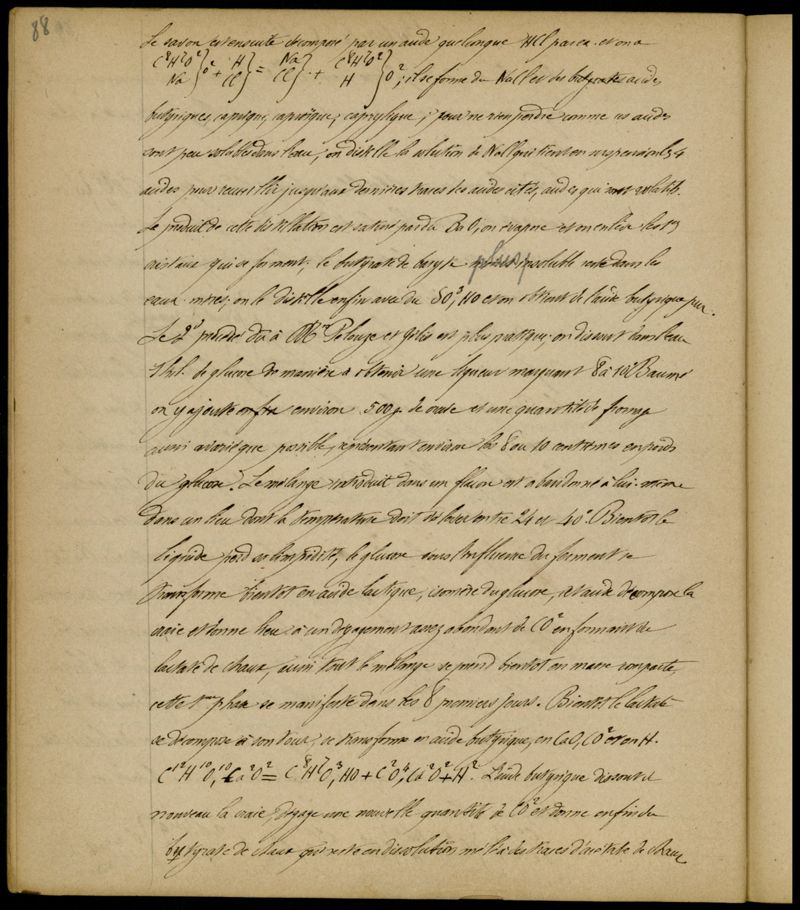 88
Le savon est ensuite décomposé par un acide quelconque HCl par ex. et on a
C⁸H⁷O² } O² + H } = Na } + C⁸H⁷O² } O²; il se forme du NaCl et des acides
Na Cl Cl H
butyriques, caprique, caproïque, caprylique; pour ne rien perdre comme ces acides
sont peu solubles dans l'eau, on distille la solution de NaCl qui tient en suspension les 4
acides pour recueillir jusqu'aux dernières traces des acides cités, acides qui sont volatils.
Le produit de cette distillation est saturé par du BaO, on évapore et on enlève les 1ers
cristaux qui se forment; le butyrate de baryte plus soluble reste dans les
eaux mères; on le distille enfin avec du SO³, HO et on obtient de l'acide butyrique pur.
Le 2d procédé dû à MM. Pelouze et Gélis est plus pratique; on dissout dans l'eau
de glucose de manière à obtenir une liqueur marquant 8 à 10° Baumé
on y ajoute environ 500 g. de craie et une quantité de fromage
aussi que possible, représentant environ les 8 ou 10 centièmes en poids
du glucose. Le mélange introduit dans un flacon est abandonné à lui-même
dans un lieu dont la température doit être entre 24 et 40°. Bientôt le
liquide perd sa limpidité, le glucose sous l'influence du ferment se
transforme bientôt en acide lactique, isomère du glucose, cet acide décompose la
craie et donne lieu à un dégagement assez abondant de CO² en formant du
lactate de chaux, aussi tout le mélange se prend bientôt en masse compacte,
cette 1ère phase se manifeste dans les 8 premiers jours. Bientôt le lactate
se décompose à son tour, se transforme en acide butyrique, en CaO, CO² et en H.
C¹²H¹⁰O¹⁰, Ca²O² = C⁸H⁷O³, HO + C²O⁴, Ca²O² + H². L'acide butyrique dissout de
nouveau la craie, dégage une nouvelle quantité de CO² et donne enfin du
butyrate de chaux qui reste en dissolution mêlé à des traces d'acétate de chaux